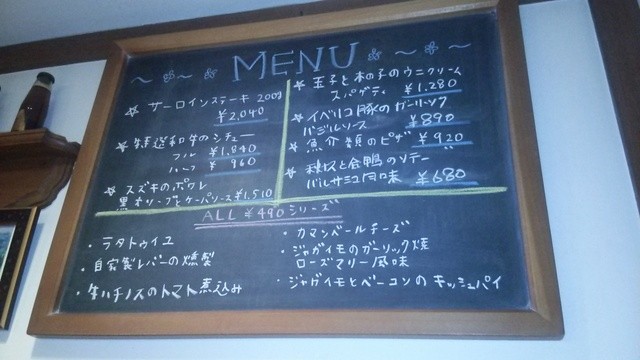 MENU
サーロインステーキ 200g
¥2,040
特選和牛のシチュー
フル ¥1,840
ハーフ ¥960
スズキのポワレ
黒オリーブとケパーソース ¥1,510
玉子と木の子のウニクリーム
スパゲティ ¥1,280
イベリコ豚のガーリック
バジルソース ¥890
魚介類のピザ ¥920
合鴨のソテー
バルサミコ風味 ¥680
ALL ¥490 シリーズ
・ラタトゥイユ
・自家製レバーの燻製
・牛ハチノスのトマト煮込み
・カマンベールチーズ
・ジャガイモのガーリック焼
ローズマリー風味
・ジャガイモとベーコンのキッシュパイ